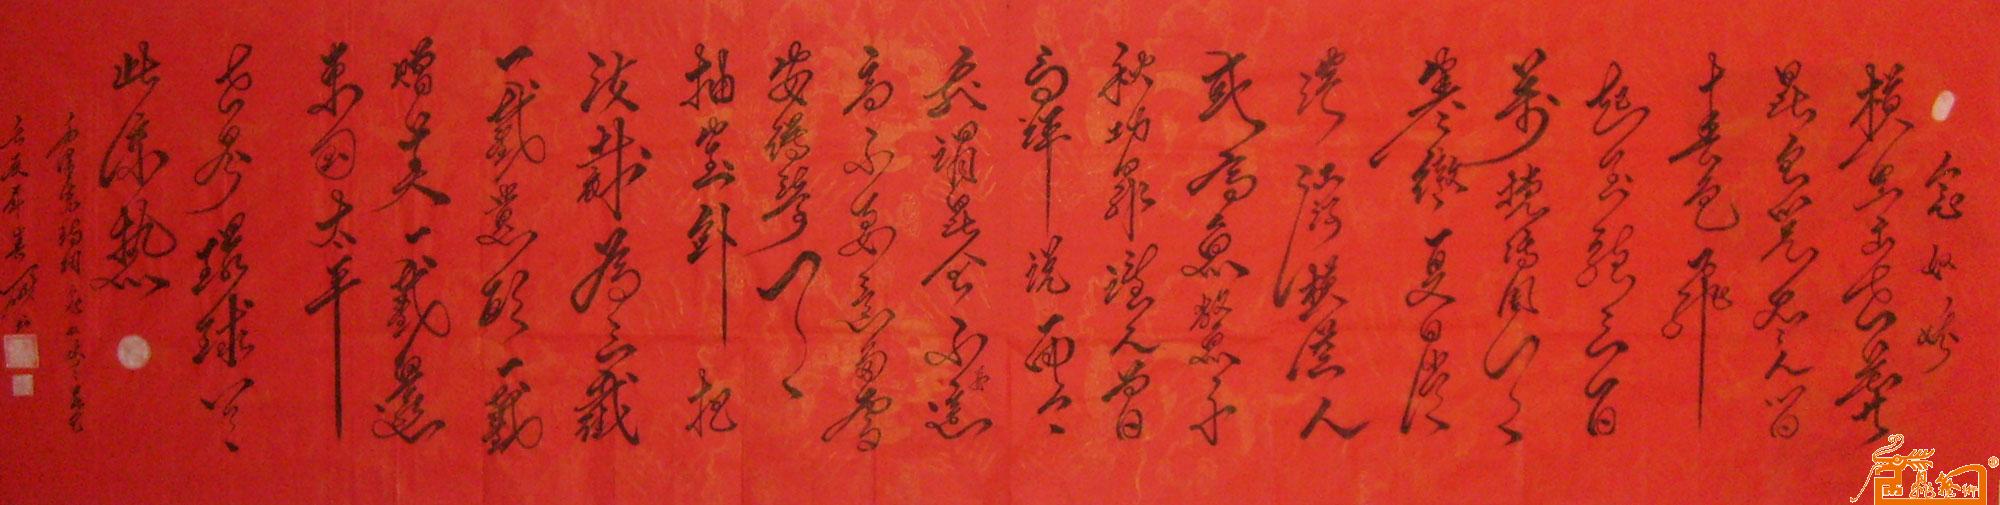 念奴娇
横空出世莽
昆仑阅尽人间
春色飞
起玉龙三百
萬搅得周天
寒彻夏日消
溶江河横溢人
或为鱼鳖千
秋功罪谁人曾
与评说而今
我谓昆仑不要这
高不要这多雪
安得倚天
抽宝剑把
汝裁為三截
一截遗欧一截
赠美一截还
東国太平
世界环球同
此凉热